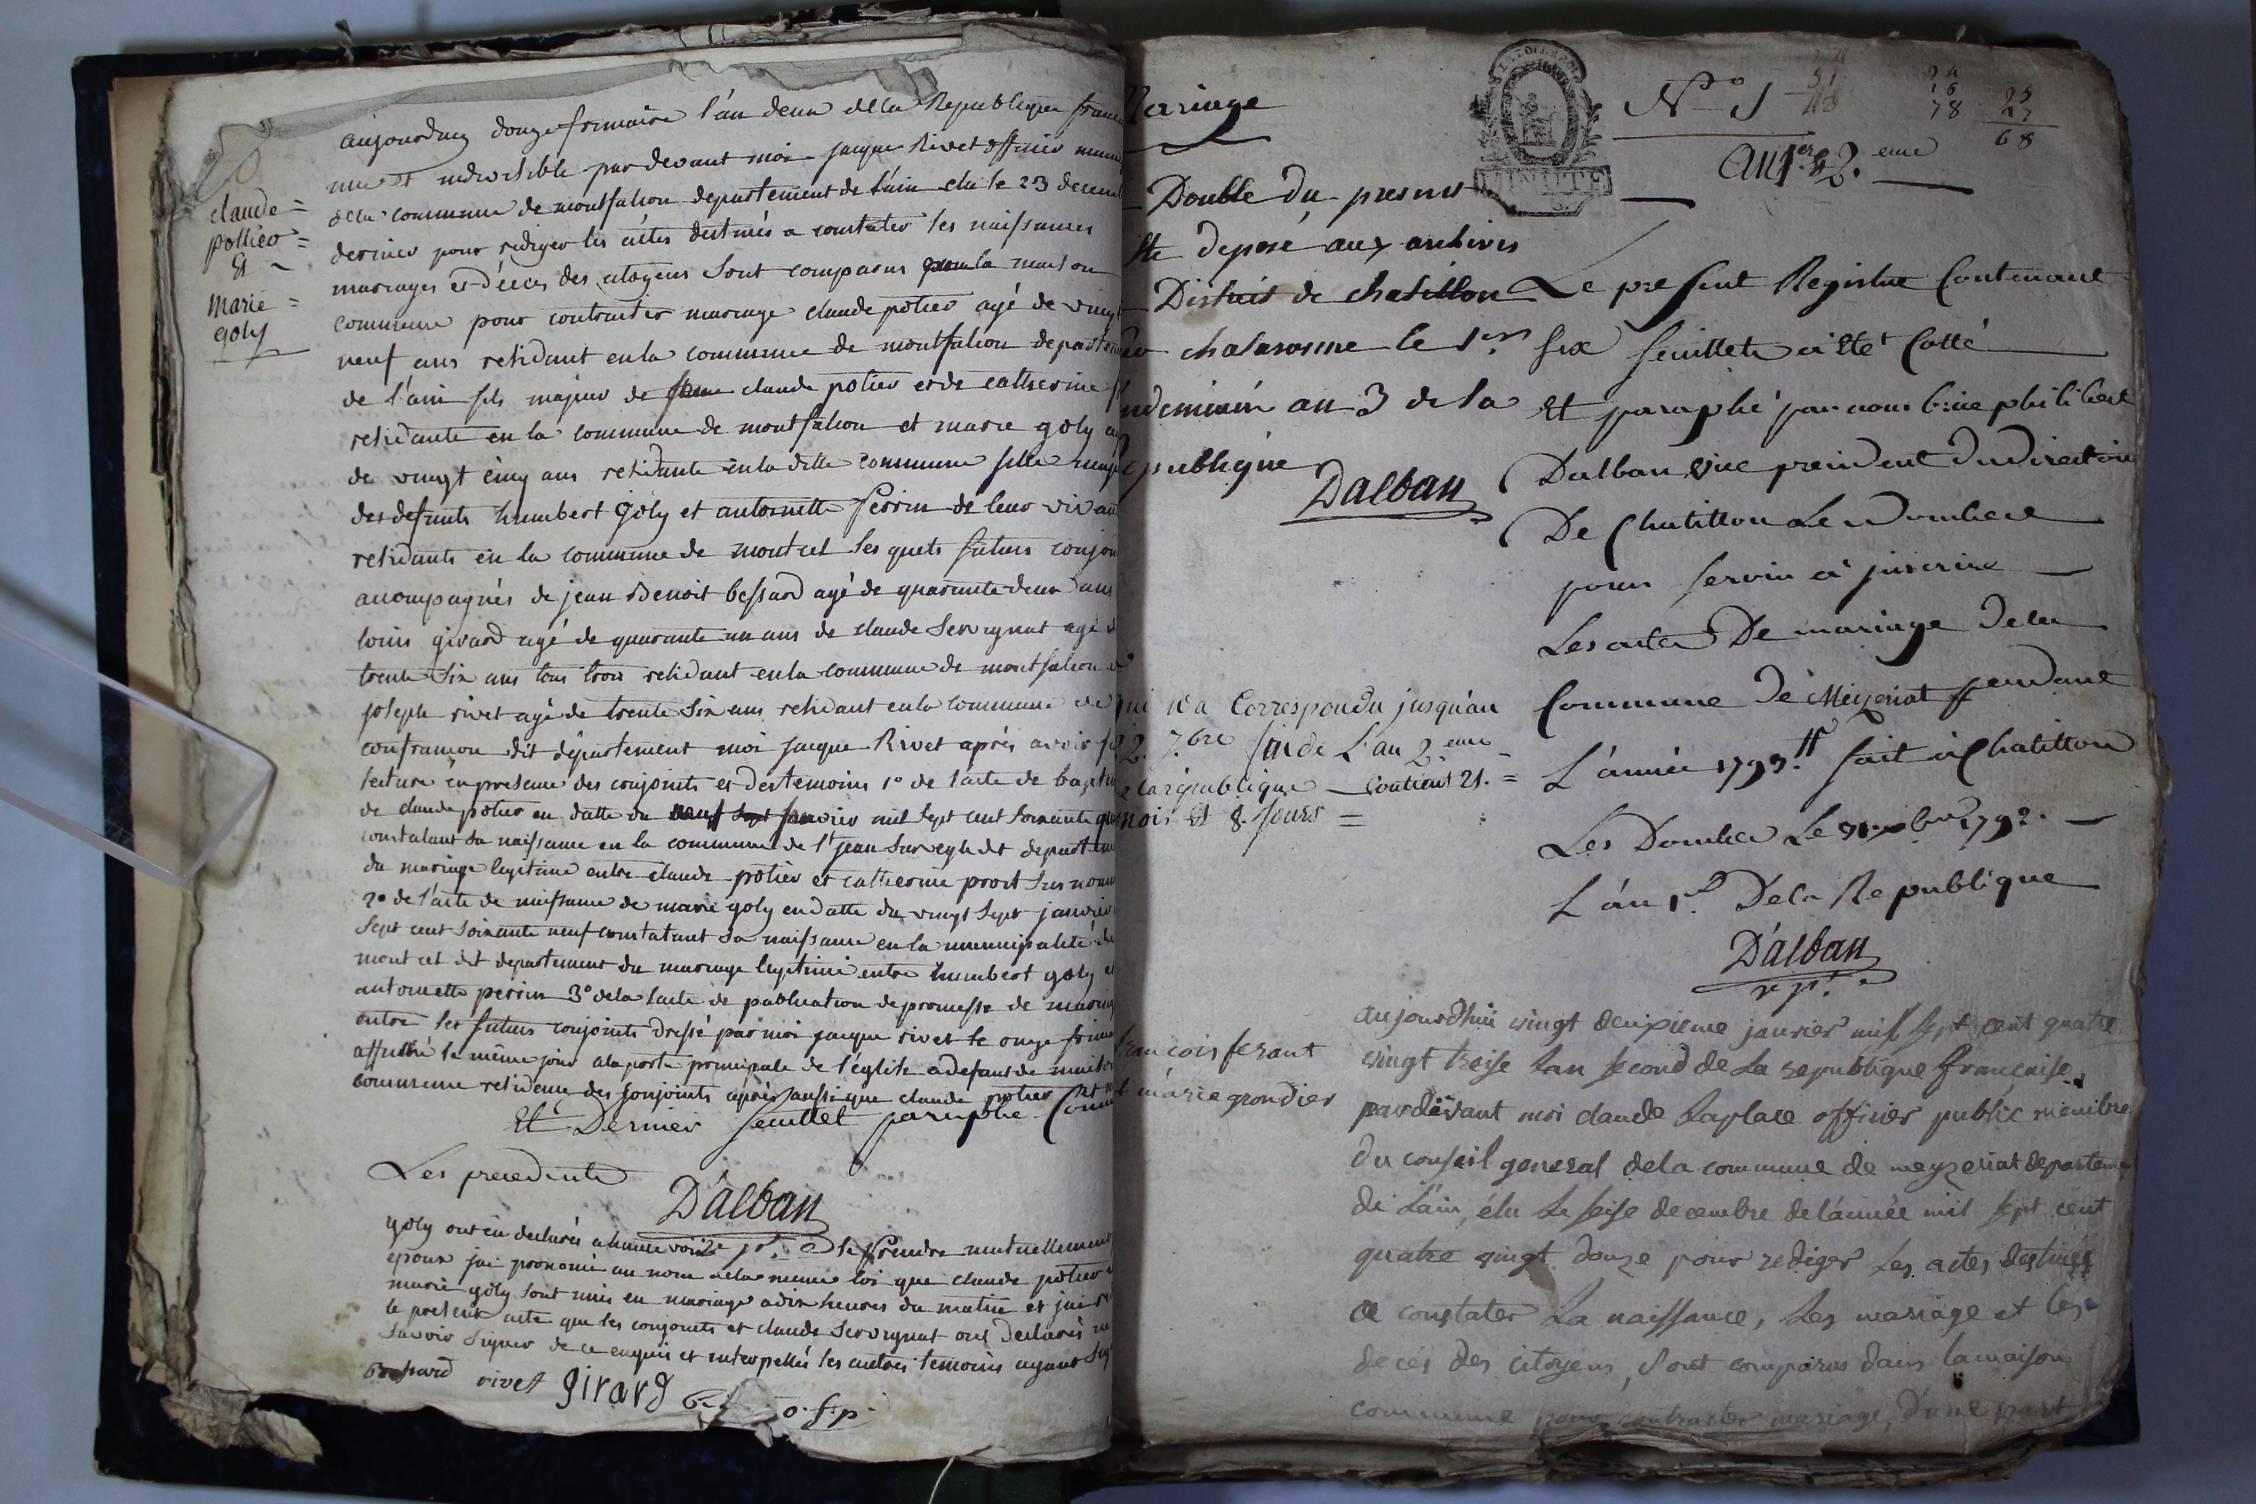 aujourduy douze frimaire l'an deux de la Republique franc
une et indivisible par devant moi jacque Rivet officier muni
de la commune de montfalcon departement de l'ain elu le 23 decem
dernier pour rediger les actes destinés a constater les naissances
mariages et déces des citoyens sont comparus en la maison
commune pour contracter mariage claude potier agé de vingt
neuf ans residant en la commune de montfalcon departem
de l'ain fils majeur de claude potier et de catherine
residante en la commune de montfalcon et marie goly
de vingt cinq ans residante en la ditte commune fille
des defunts humbert Goly et antoinette perrin de leur vivant
residants en la commune de montcet les quels futurs conjoin
acompagnés de jean Benoit bessard agé de quarante deux ans
louis girard agé de quarante un ans de claude servignat agé
trente six ans tous trois residant en la commune de montfalcon
joseph rivet agé de trente six ans residant en la commune de
confrancon dit département moi jacque Rivet après avoir
lecture en presence des conjoints et des temoins 1o de l'acte de
de claude potier en datte du janvier mil sept cent soixante
constatant sa naissance en la commune de st jean sur veyle dit depart
du mariage legitime entre claude potier et catherine
2o de l'acte de naissance de marie goly en datte du vingt sept janvier
sept cent soixante neuf constatant sa naissance en la municipalité de
montcet dit departement du mariage legitime entre humbert goly et
antoinette perrin 3o de la l'acte de publication de promesse de mariag
entre les futurs conjoints dressé par moi jacque rivet le onze frim
affiché le même jour a la porte principale de l'églile a defaut de maison
commune residence des conjoints après aussi que claude potier et
Et Dernier feuillet paraphé Comm
Les precedents
D'alban
goly ont eu declarés a haute voix se prendre mutuellement
epoux jai prononcé au nom de la meme loi que claude potier
marie goly sont unis en mariage a dix heures du matin et jai
le present acte que les conjoints et claude servignat ont declarés
savoir signer de ce enquis et interpellés les autres temoins ayant
Bessard rivet girard o.f.p.
claude =
pottier =
Et
Marie =
goly
Mariage
No 1
51
16
78
25
27
68
an 1er & 2.eme
Double du present
ete deposé aux archives
District de chatillon
chalaronne le 1er
ndemiair an 3 de la
Republique
Dalban
Le present Registre Contenant
six feuillets a été Cotté
Et paraphé par nous philibert
Dalban vice president du directoire
De Chatillon Les Dombes
pour servir à inscrire
Les actes De mariage De la
Commune De Mezeriat pendant
L'année 1793. fait à Chatillon
Les Dombes Le 1792.
L'an 1er De la Republique
D'alban
v. pt.
qui n'a Correspondu jusquau
2. 7.bre fin de L'an 2.eme
de la république Contient 21. =
mois Et 8 Jours =
francois ferant
et marie grondier
aujourdhui vingt deuxieme janvier mil sept cent quatre
vingt treise Lan second de La republique francaise
pardevant moi claude Laplace officier public membre
du conseil general dela commune de meyzeriat departeme
de L'ain, élu Le seise decembre de l'année mil sept cent
quatre vingt douze pour rediger Les actes destinés
a constater La naissance, Les mariage et les
decés des citoyens, sont comparus dans la maison
commune pour contracter mariage, d'une part